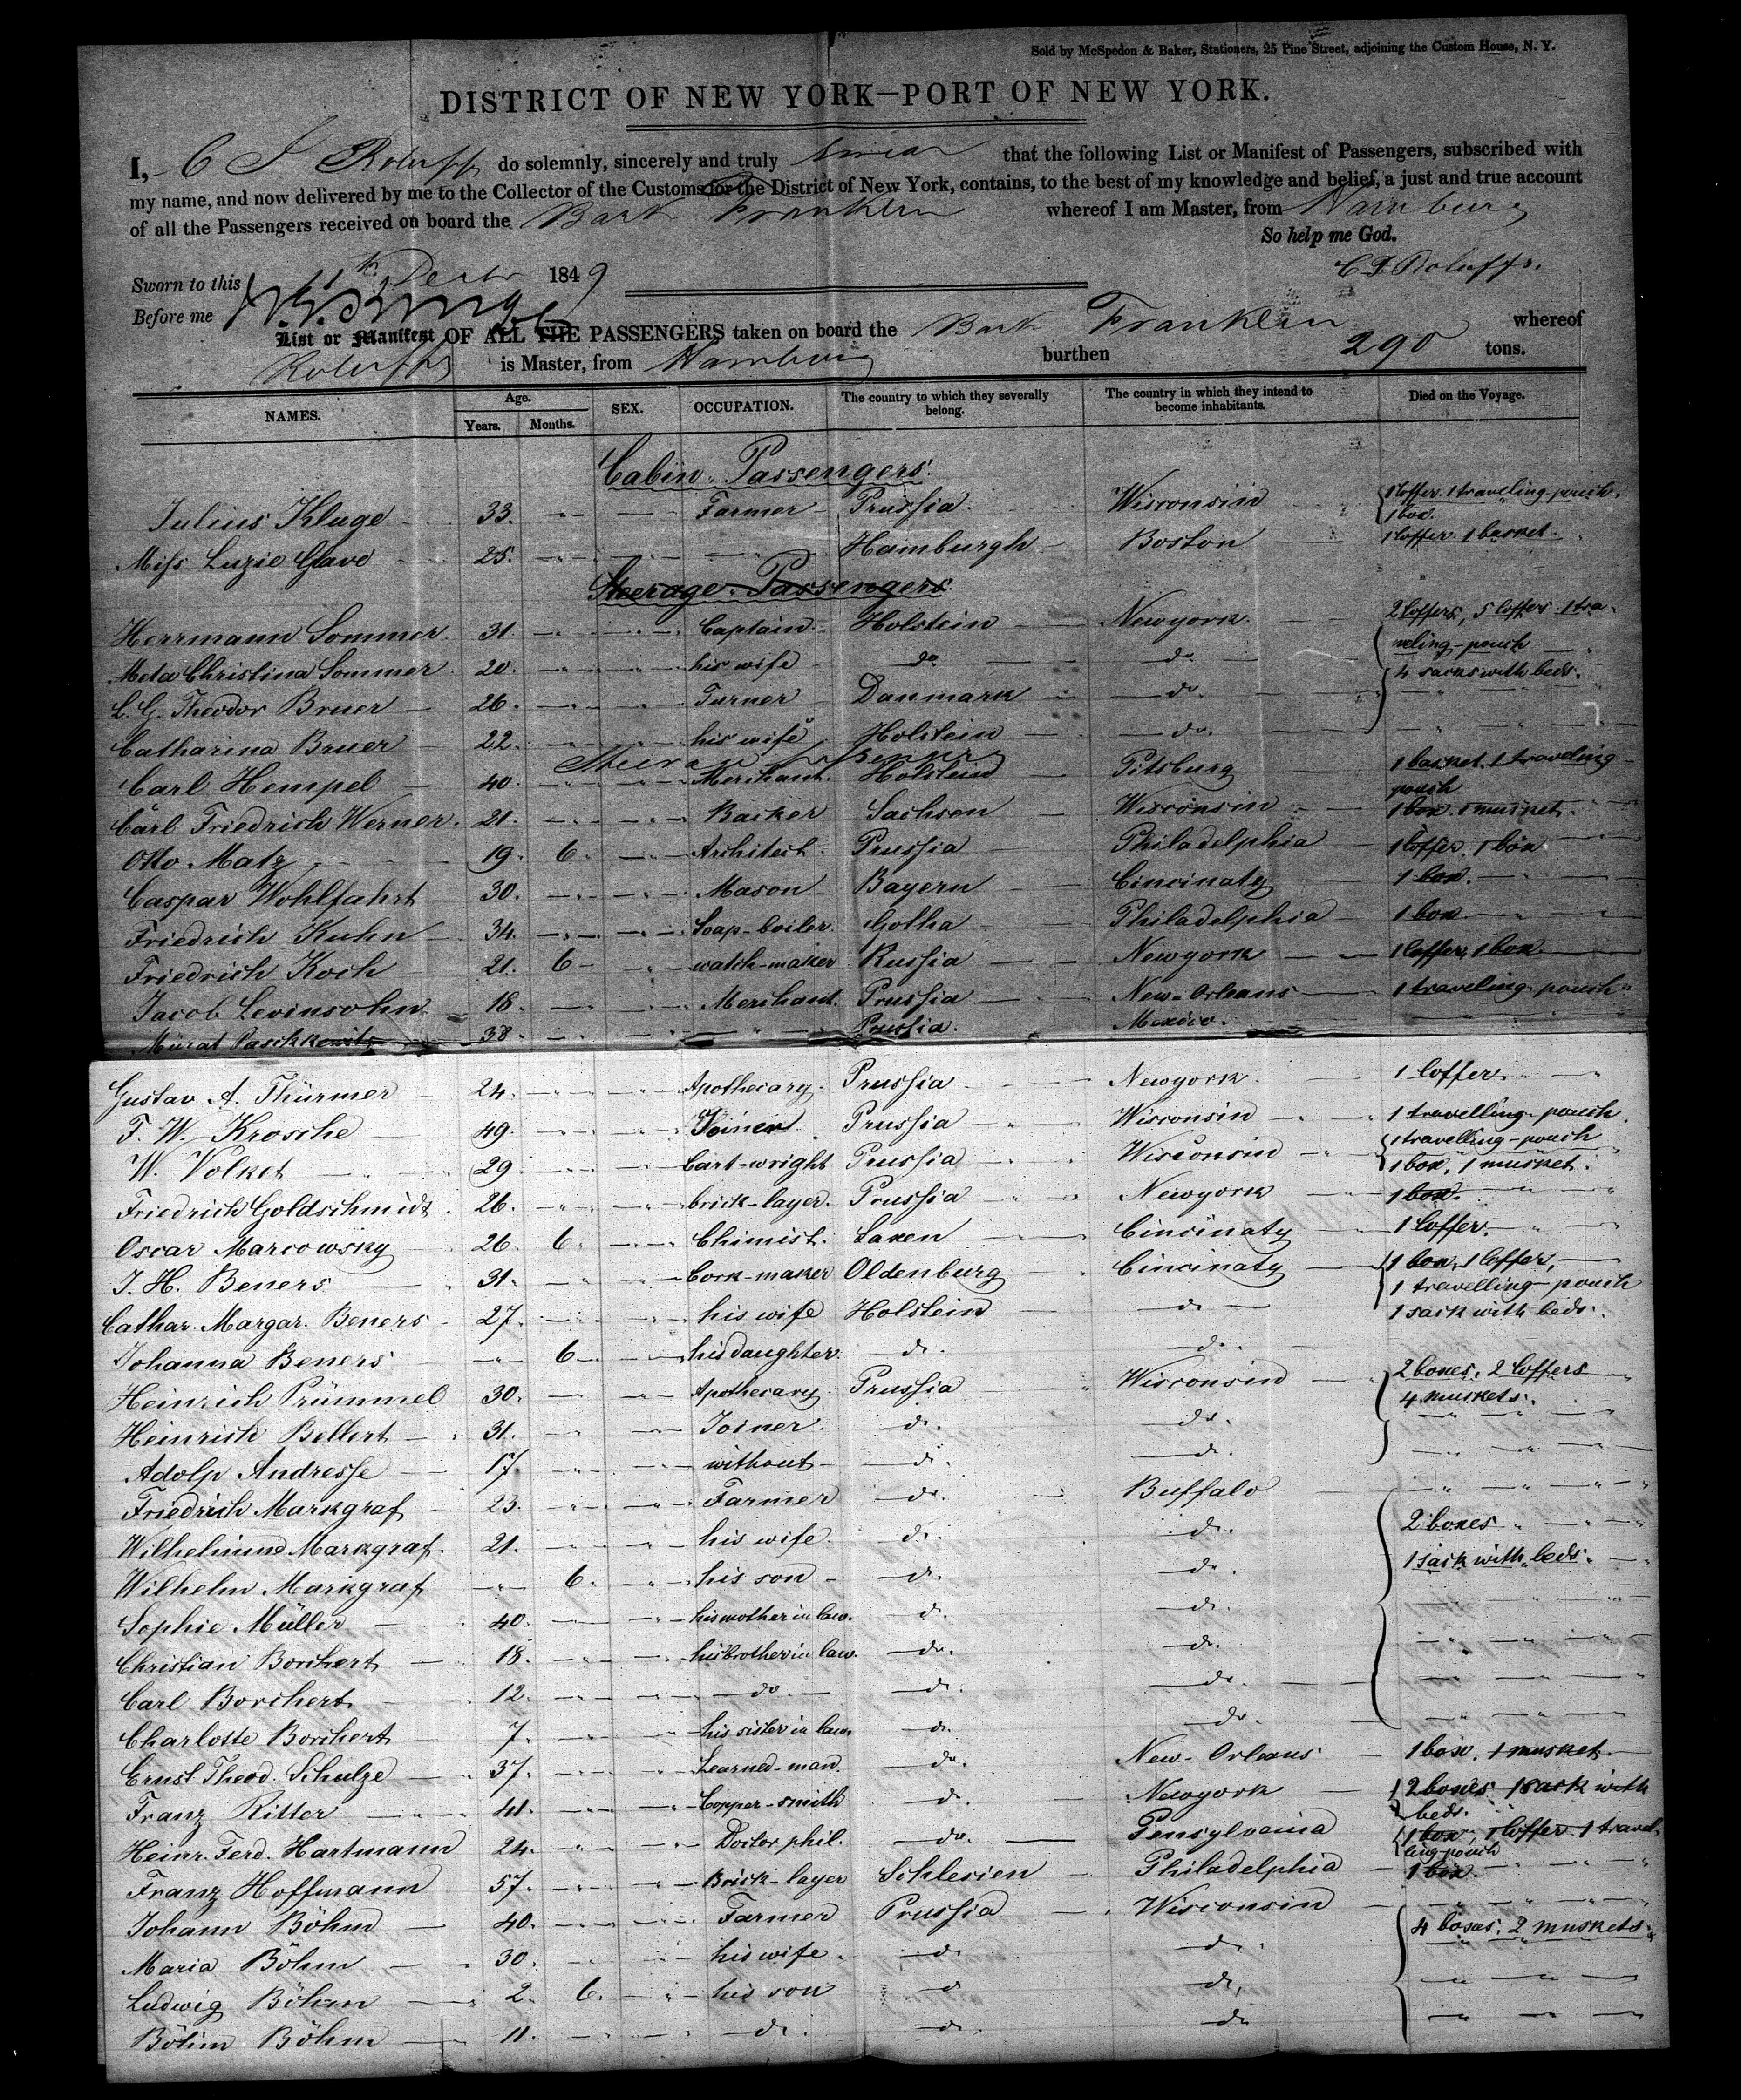 Sold by McSpedon & Baker, Stationers, 25 Pine Street, adjoining the Custom House, N. Y.
DISTRICT OF NEW YORK—PORT OF NEW YORK.
I, C J Roluffs do solemnly, sincerely and truly swear that the following List or Manifest of Passengers, subscribed with
my name, and now delivered by me to the Collector of the Customs for the District of New York, contains, to the best of my knowledge and belief, a just and true account
of all the Passengers received on board the Bark Franklin whereof I am Master, from Hamburg
So help me God.
Sworn to this 11th Decbr 1849 C J Roluffs.
Before me
List or Manifest OF ALL THE PASSENGERS taken on board the Bark Franklin whereof
Roluffs is Master, from Hamburg burthen 290 tons.
NAMES. Age. Years. Months. SEX. OCCUPATION. The country to which they severally belong. The country in which they intend to become inhabitants. Died on the Voyage.
Cabin-Passengers.
Julius Kluge 33. Farmer Prussia. Wisconsin 1 Coffer. 1 traveling-pouch. 1 box.
Miss Luzie Grave 25. Hamburgh Boston 1 Coffer. 1 basket.
Steerage-Passengers.
Herrmann Sommer. 31. Captain Holstein Newyork. 2 Coffers, 5 Coffers. 1 tra-
Meta Christina Sommer. 20. his wife do do veling-pouch
L. G. Theodor Bruer 26. Turner Danmark do. 4 sacks with beds.
Catharina Bruer 22. his wife Holstein do.
Carl Hempel 40. Merchant. Holstein Pitsburg 1 basket. 1 traveling pouch
Carl Friedrich Werner. 21. Backer Sachsen Wisconsin 1 box. 1 musket.
Otto Matz 19. 6. Architect. Prussia Philadelphia 1 Coffer. 1 box
Caspar Wohlfahrt 30. Mason Bayern Cincinaty 1 box.
Friedrich Kuhn 34. Soap-boiler. Gotha Philadelphia 1 box
Friedrich Koch 21. 6 watch-maker Russia Newyork 1 Coffer, 1 box
Jacob Levinsohn 18. Merchant. Prussia New-Orleans 1 traveling-pouch
Murat Paschkewitz 38. Prussia. Mexico.
Gustav A. Thürmer 24. Apothecary. Prussia Newyork. 1 Coffer.
F. W. Krosche 49. Joiner. Prussia Wisconsin 1 travelling-pouch.
W. Volket 29. Cart-wright Prussia Wisconsin 1 travelling-pouch 1 box, 1 musket.
Friedrich Goldschmidt. 26. brick-layer. Prussia Newyork 1 box.
Oscar Marcowsky 26. 6. Chimist. Saxen Cincinaty 1 Coffer.
J. H. Beners 31. Cork-maker Oldenburg Cincinaty 1 box, 1 Coffer,
1 travelling-pouch
Cathar. Margar. Beners 27. his wife Holstein do 1 sack with beds.
Johanna Beners 6. his daughter. do. do.
Heinrich Prümmel 30. Apothecary. Prussia Wisconsin 2 boxes. 2 Coffers
4 muskets.
Heinrich Bellert 31. Joiner. do. do.
Adolp Andresse 17. without do. do.
Friedrich Markgraf 23. Farmer do. Buffalo
Wilhelmine Markgraf. 21. his wife. do. do. 2 boxes
Wilhelm Markgraf 6. his son do. do. 1 sack with beds.
Sophie Müller 40. his mother in law. do. do.
Christian Borchert 18. his brother in law. do. do.
Carl Borchert 12. do. do. do.
Charlotte Borchert 7. his sister in law. do. do.
Ernst Theod. Schulze 37. Learned-man. do. New-Orleans 1 box. 1 musket.
Franz Ritter 41. Copper-smith do. Newyork 2 boxes 1 sack with beds.
Heinr. Ferd. Hartmann 24. Doctor phil. do. Pensylvania 1 box, 1 Coffer 1 travelling pouch
Franz Hoffmann 57. Brick-layer Schlesien Philadelphia 1 box.
Johann Böhm 40. Farmer Prussia Wisconsin
Maria Böhm 30. his wife. do. do. 4 boxes. 2 muskets.
Ludwig Böhm 2. 6. his son do do.
Böhm Böhm 11. do. do. do